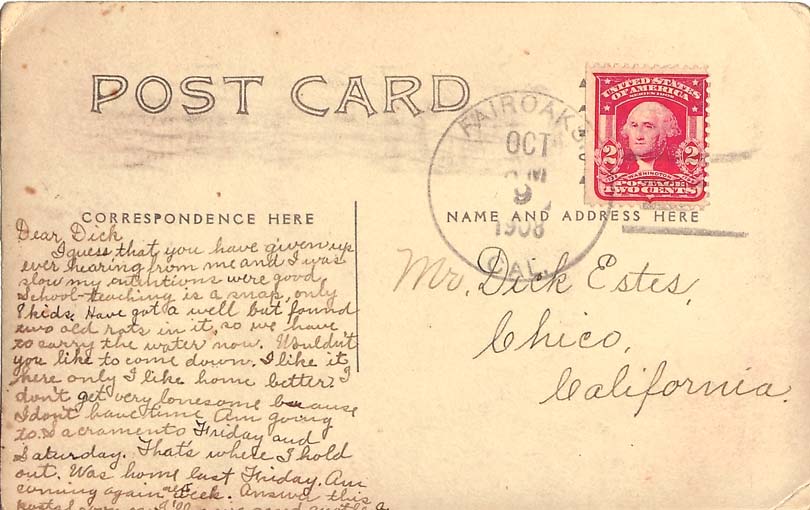 POST CARD
FAIROAKS
OCT
9
1908
CAL.
UNITED STATES
OF AMERICA
2 2
WASHINGTON
POSTAGE
TWO CENTS
CORRESPONDENCE HERE
NAME AND ADDRESS HERE
Dear Dick
I guess that you have given up
ever hearing from me and I was
slow my intentions were good.
School-teaching is a snap, only
8 kids. Have got a well but found
two old rats in it, so we have
to carry the water now. Wouldn't
you like to come down. I like it
here only I like home better. I
don't get very lonesome because
I don't have time. Am going
to Sacramento Friday and
Saturday. That's where I hold
out. Was home last Friday. Am
coming again week. Answer this
postal
Mr. Dick Estes,
Chico,
California.